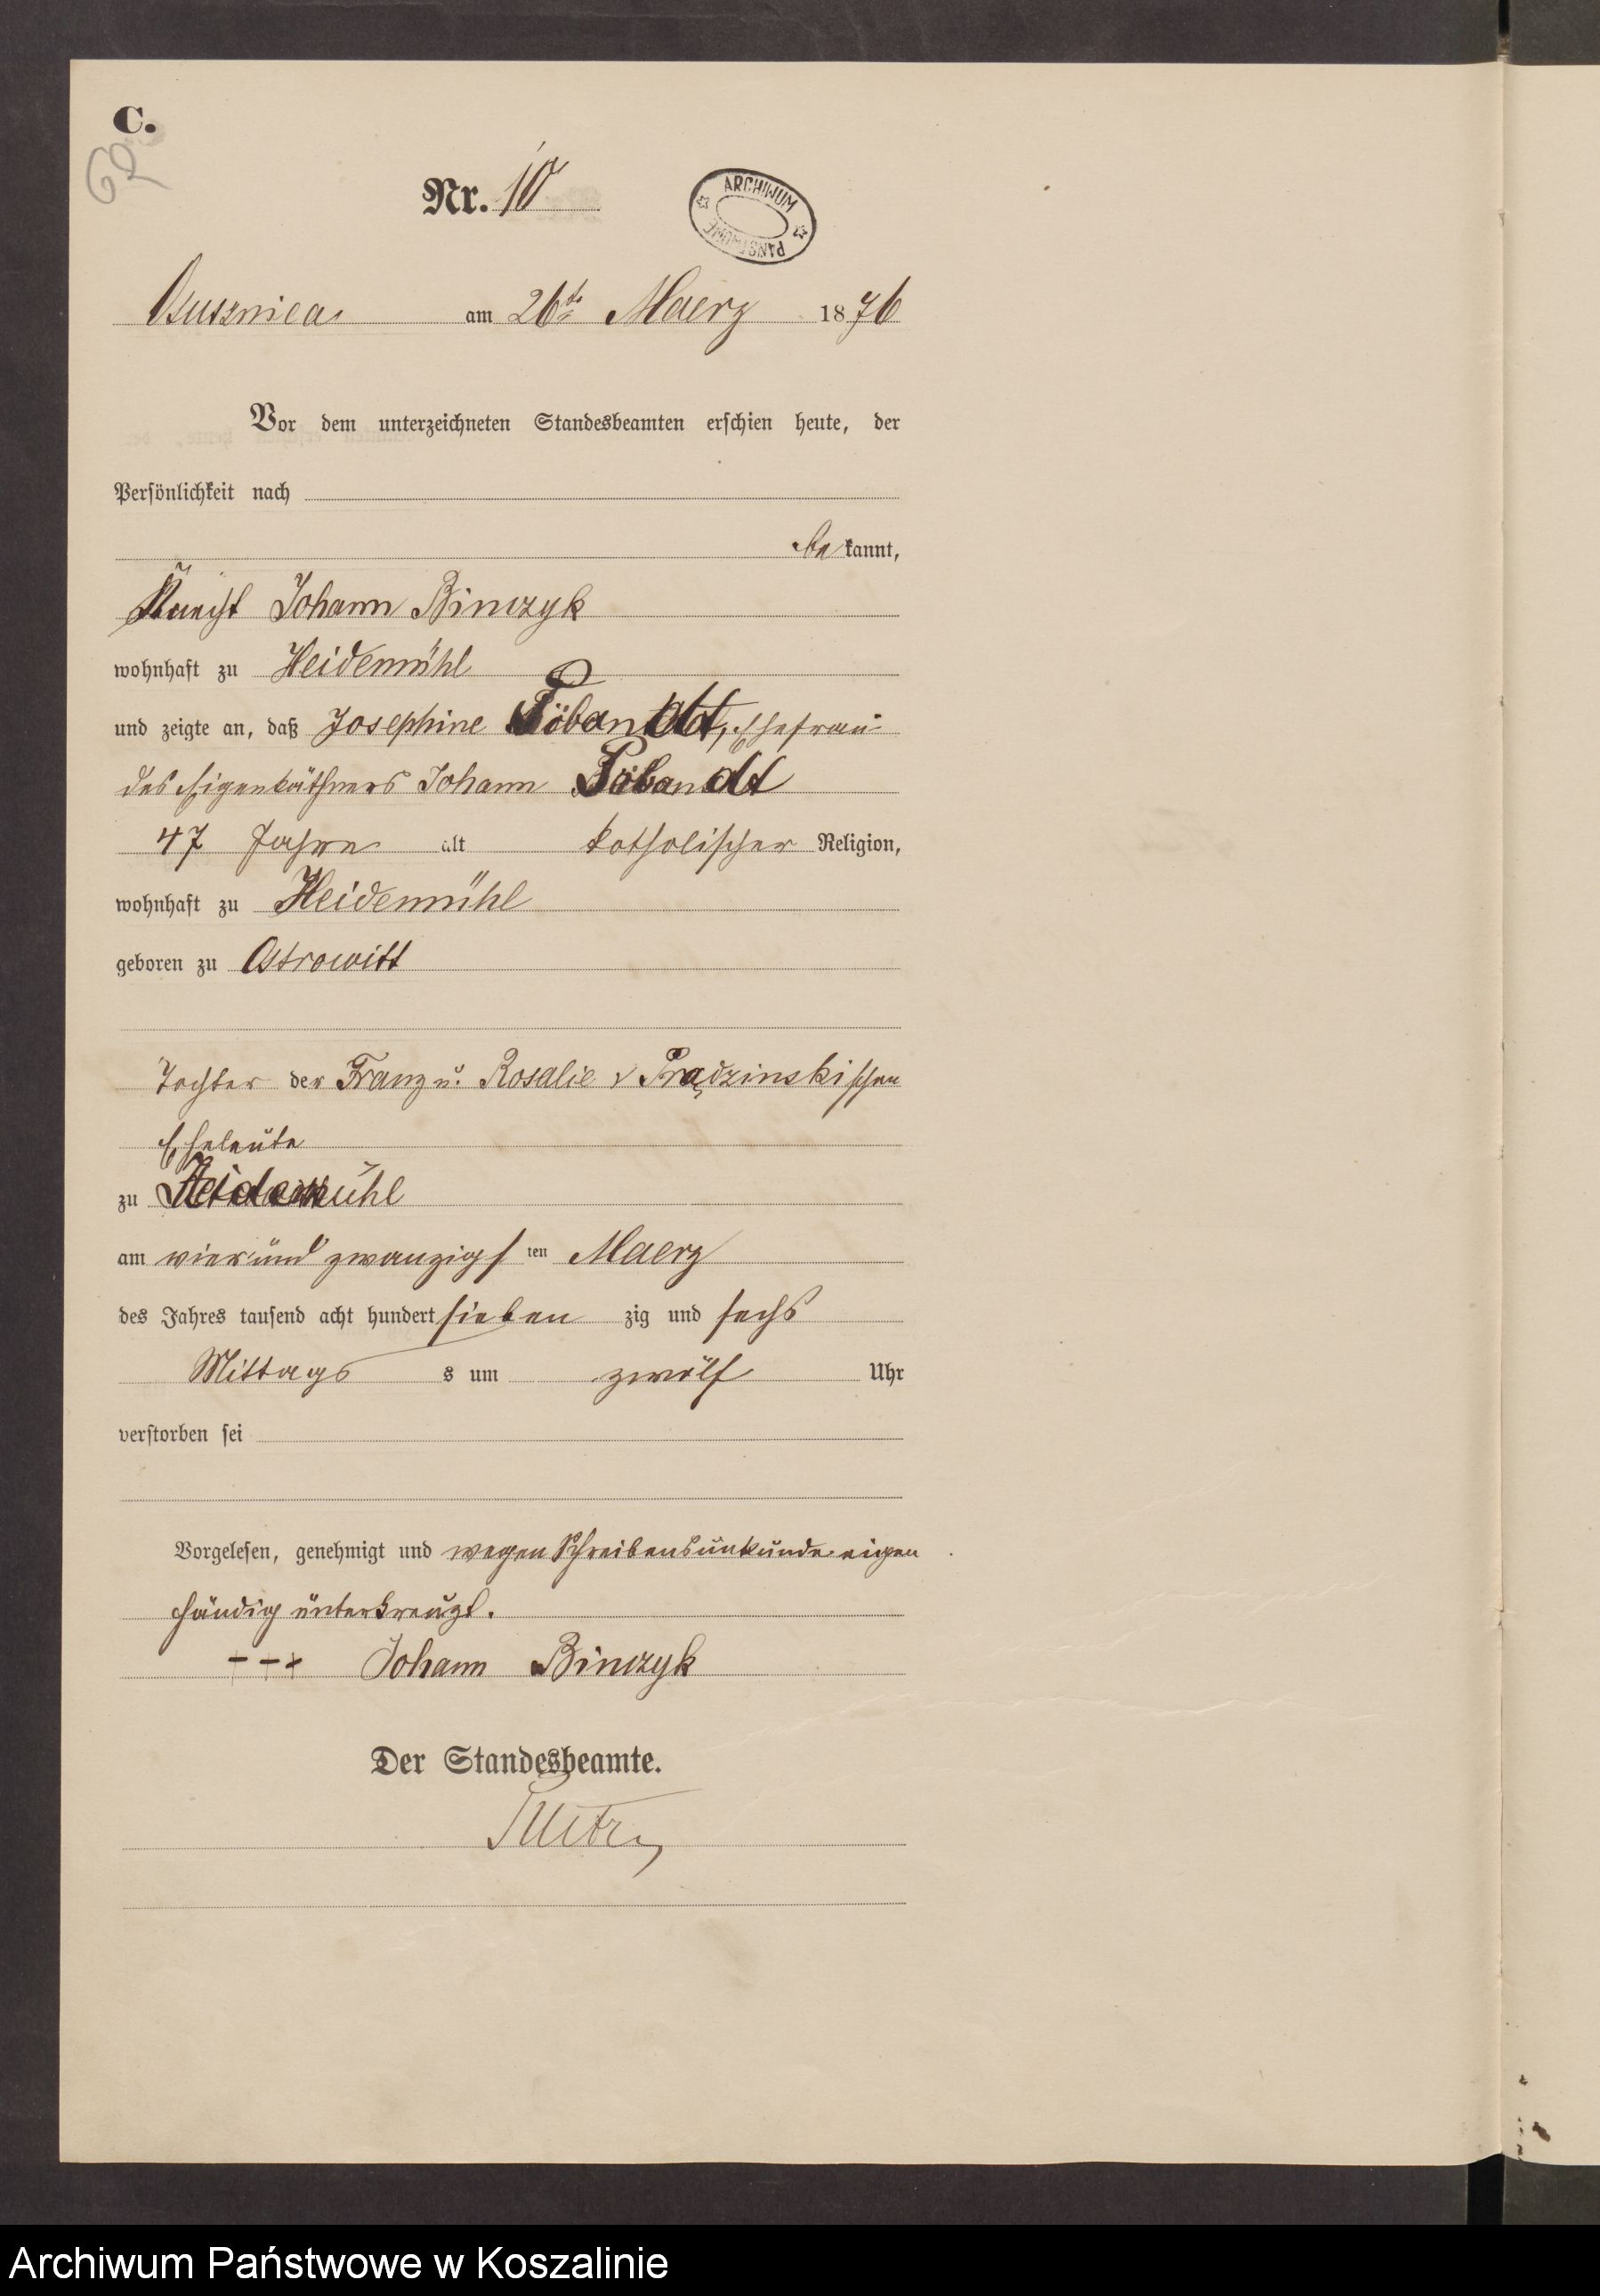 C.
62
Nr. 10
ARCHIWUM PAŃSTWOWE
Ossusznica am 26te Maerz 1876
Vor dem unterzeichneten Standesbeamten erschien heute, der
Persönlichkeit nach
be kannt,
Knecht Johann Binczyk
wohnhaft zu Heidemühl
und zeigte an, daß Josephine Ehefrau
des Eigenkäthners Johann
47 Jahre alt katholischer Religion,
wohnhaft zu Heidemühl
geboren zu Ostrowitt
Tochter der Franz u. Rosalie v Prądzinskischen
Eheleute
zu Heidemühl
am vier und zwanzigs ten Maerz
des Jahres tausend acht hundert sieben zig und sechs
Mittags s um zwölf Uhr
verstorben sei
Vorgelesen, genehmigt und wegen Schreibensunkunde eigen
händig unterkreuzt.
+ + + Johann Binczyk
Der Standesbeamte.
Archiwum Państwowe w Koszalinie